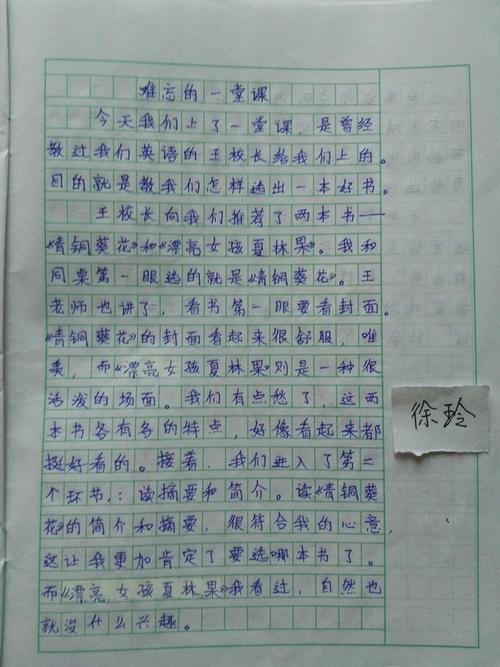 难忘的一堂课
今天我们上了一堂课，是曾经
教过我们英语的王校长给我们上的。
目的就是教我们怎样选出一本好书。
王校长向我们推荐了两本书——
《青铜葵花》和《漂亮女孩夏林果》。我和
同桌第一眼选的就是《青铜葵花》。王
老师也讲了，看书第一眼要看封面。
《青铜葵花》的封面看起来很舒服，唯
美，而《漂亮女孩夏林果》则是一种很
活泼的场面。我们有点愁了，这两
本书各有各的特点，好像看起来都
挺好看的。接着，我们进入了第二
个环节：读摘要和简介。读《青铜葵
花》的简介和摘要，很符合我的心意，
这让我更加肯定了要选哪本书了。
而《漂亮女孩夏林果》我看过，自然也
就没什么兴趣。
徐玲